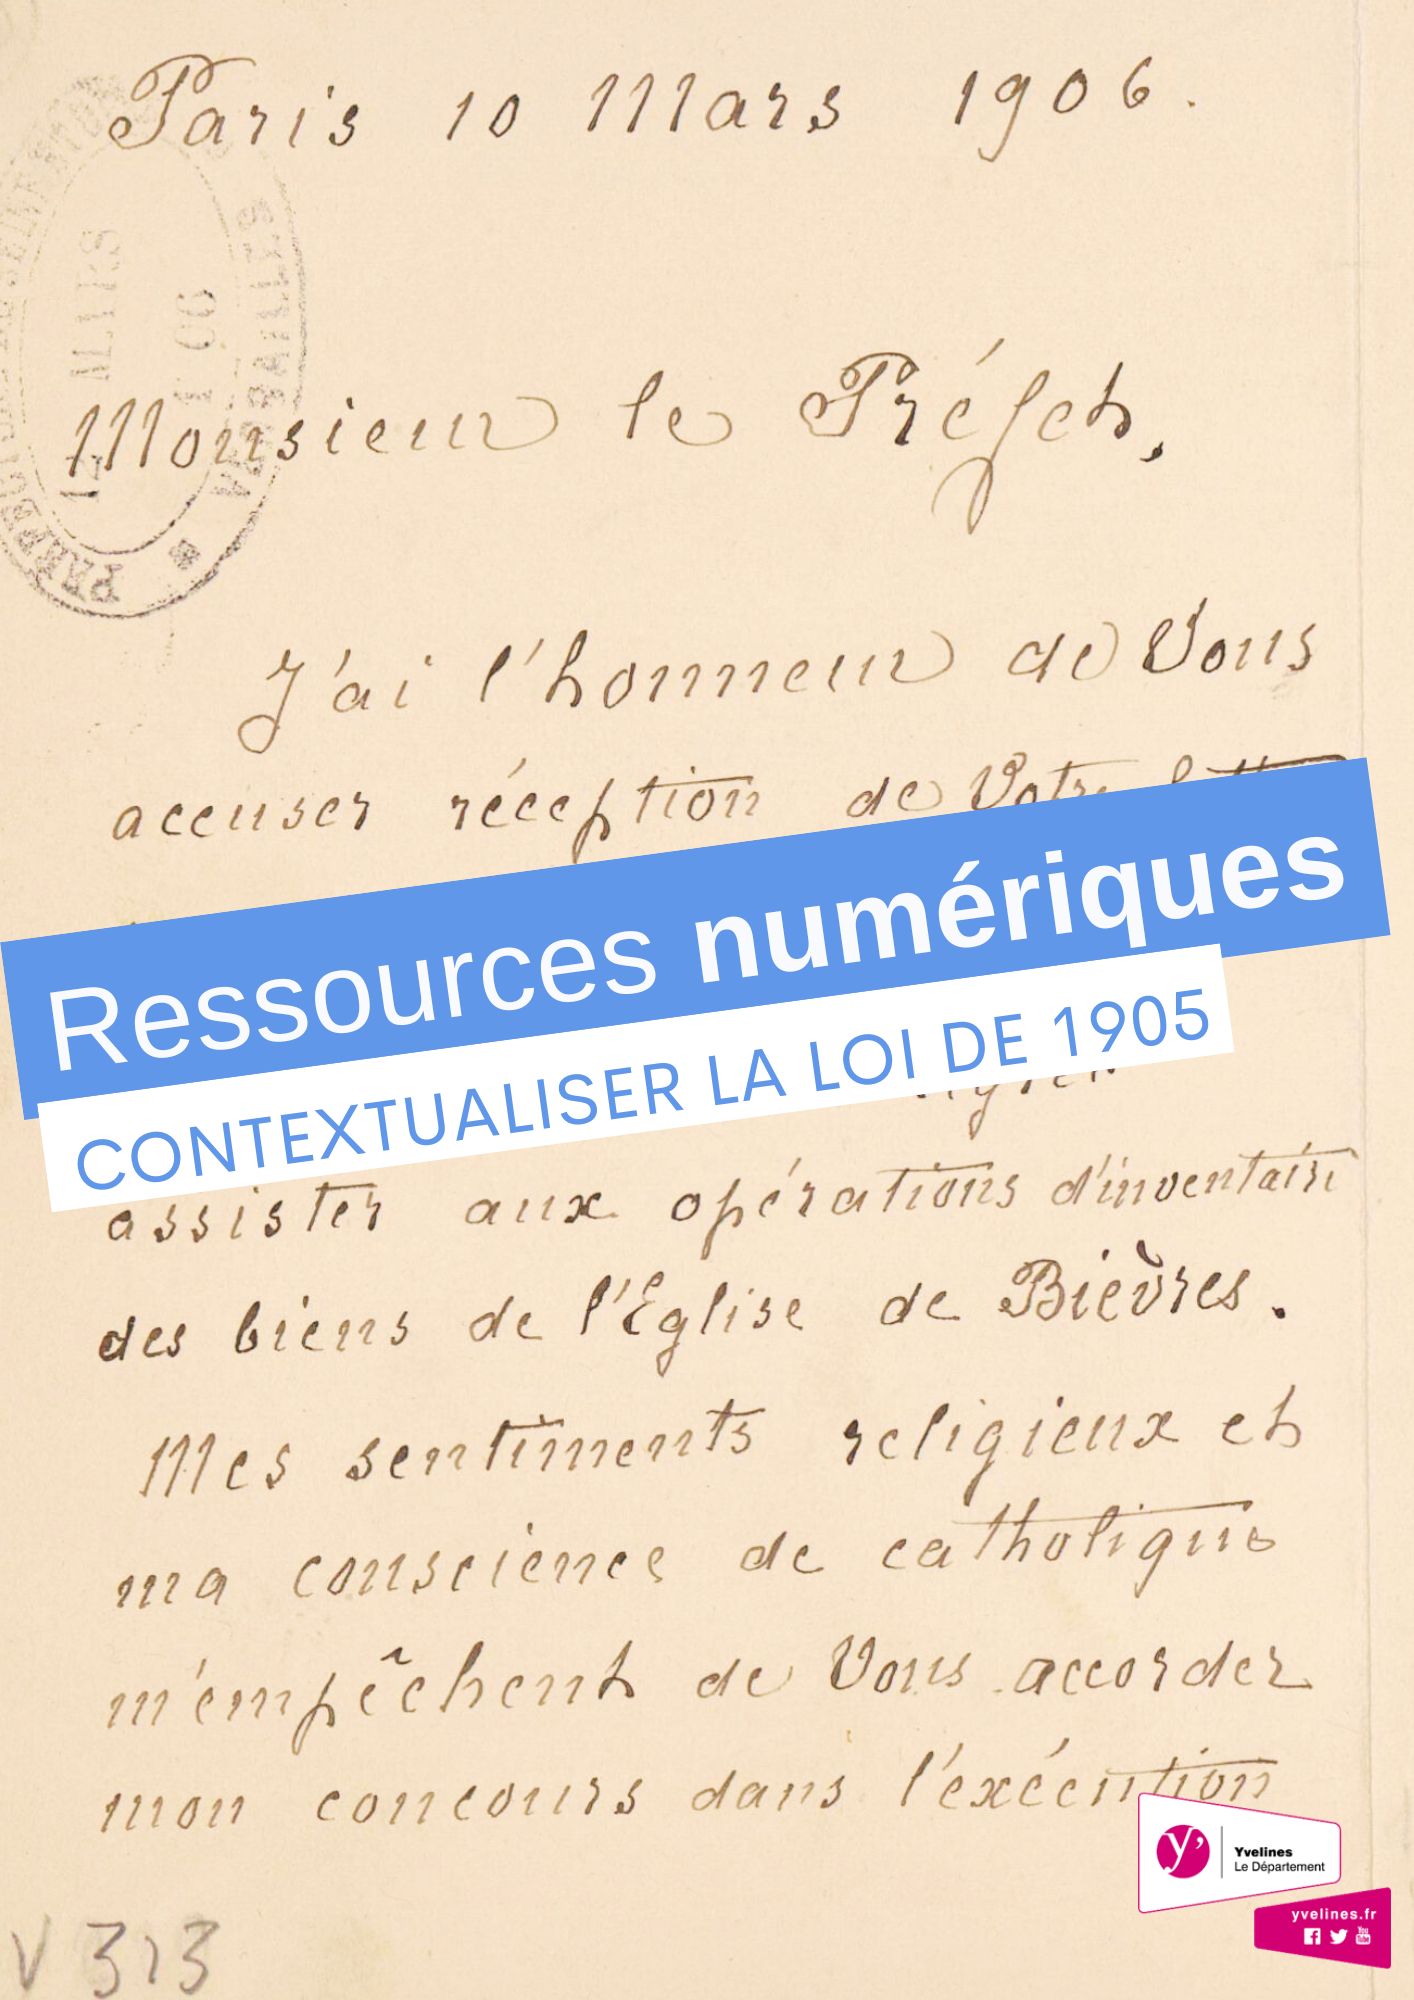 Paris 10 Mars 1906.
Monsieur le Préfet,
J'ai l'honneur de Vous
accuser réception de Votre
Ressources numériques
CONTEXTUALISER LA LOI DE 1905
assister aux opérations d'inventaire
des biens de l'Eglise de Bièvres.
Mes sentiments religieux et
ma conscience de catholique
m'empêchent de Vous accorder
mon concours dans l'exécution
V 313
PRÉFECTURE
MARS
06
VERSAILLES
Yvelines
Le Département
yvelines.fr
You
Tube